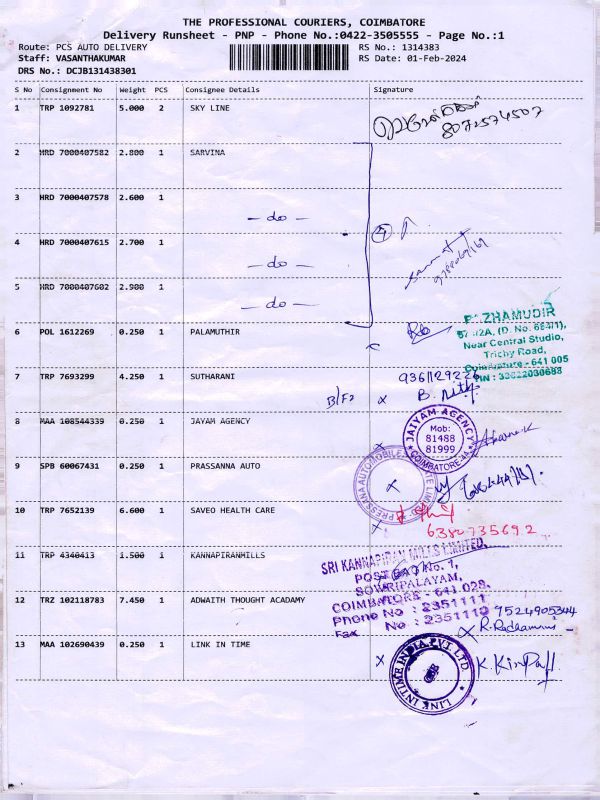 THE PROFESSIONAL COURIERS, COIMBATORE
Delivery Runsheet - PNP - Phone No.:0422-3505555 - Page No.:1
Route: PCS AUTO DELIVERY RS No.: 1314383
Staff: VASANTHAKUMAR RS Date: 01-Feb-2024
DRS No.: DCJB131438301
S No Consignment No Weight PCS Consignee Details Signature
1 TRP 1092781 5.000 2 SKY LINE
8072574507
2 HRD 7000407582 2.800 1 SARVINA
3 HRD 7000407578 2.600 1
- do -
4 HRD 7000407615 2.700 1
- do -
5 HRD 7000407602 2.900 1
- do -
6 POL 1612269 0.250 1 PALAMUTHIR
PAZHAMUDIR
Near Central Studio,
Trichy Road,
Coimbatore - 641 005
7 TRP 7693299 4.250 1 SUTHARANI
B/F2 x B.
8 MAA 108544339 0.250 1 JAYAM AGENCY
JAIYAM AGENCY
Mob:
81488
81999
COIMBATORE
9 SPB 60067431 0.250 1 PRASSANNA AUTO
x
10 TRP 7652139 6.600 1 SAVEO HEALTH CARE
6380735692
11 TRP 4340413 1.500 1 KANNAPIRANMILLS
SRI KANNAPIRAN MILLS LIMITED,
POST BAG No. 1,
SOWRIPALAYAM,
COIMBATORE - 641 028.
Phone No : 2351111
Fax No : 2351110
12 TRZ 102118783 7.450 1 ADWAITH THOUGHT ACADAMY
9524905344
x R.
13 MAA 102690439 0.250 1 LINK IN TIME
x
LINK IN TIME INDIA PVT. LTD.